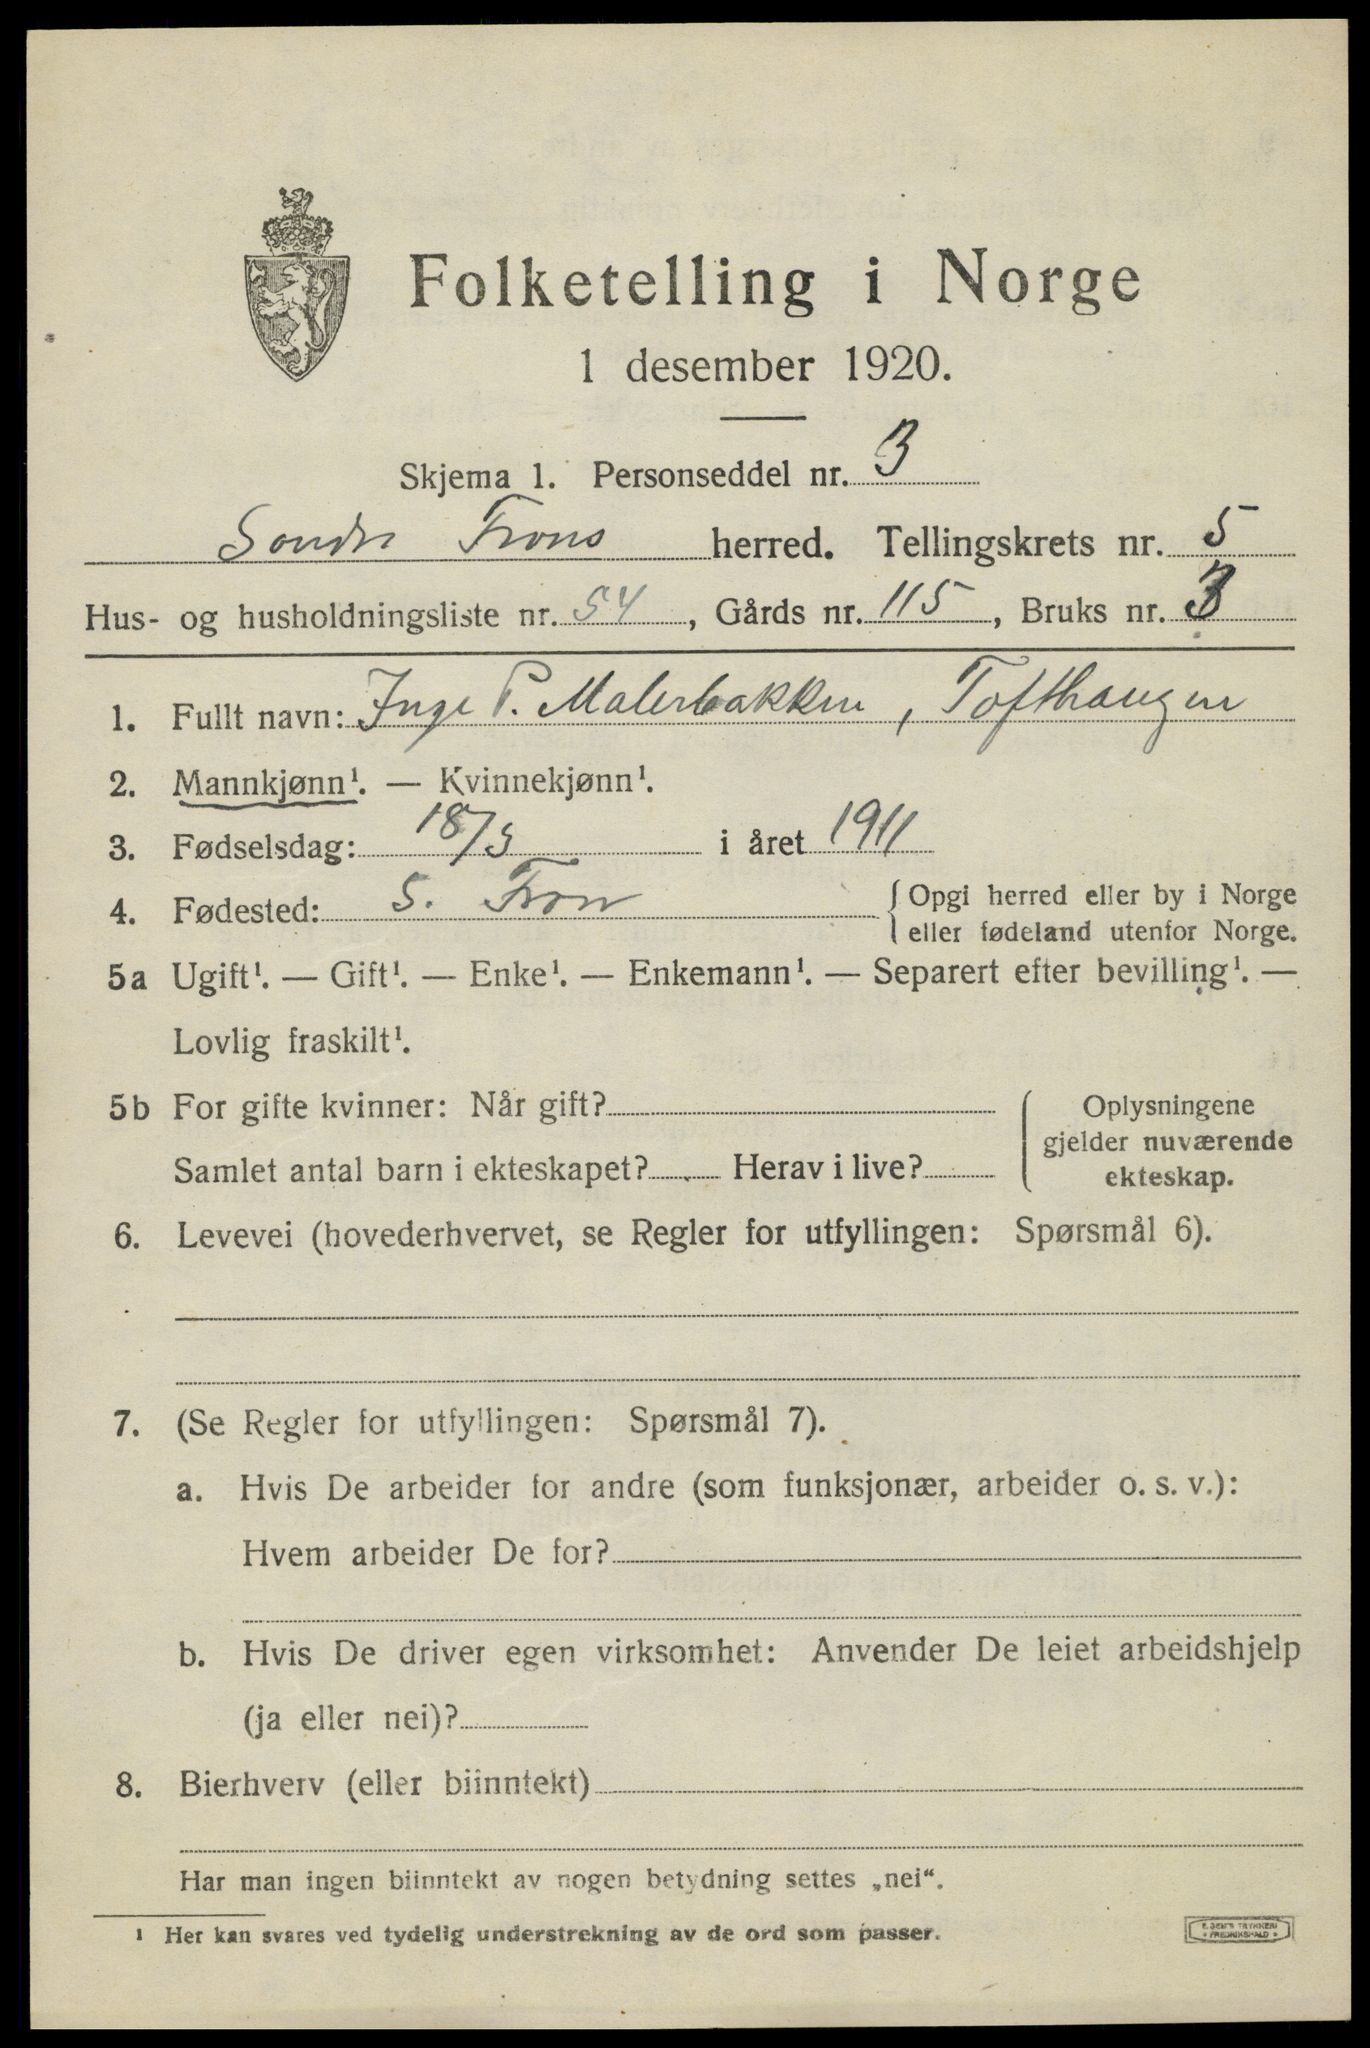 Folketelling i Norge
1 desember 1920.
Skjema 1. Personseddel nr. 3
Søndre Frons herred. Tellingskrets nr. 5
Hus- og husholdningsliste nr. 54, Gårds nr. 115, Bruks nr. 3
1. Fullt navn: Inge P. Malerbakken, Tofthaugen
2. Mannkjønn¹. — Kvinnekjønn¹.
3. Fødselsdag: 18/5 i året 1911
4. Fødested: S. Fron { Opgi herred eller by i Norge
eller fødeland utenfor Norge.
5a Ugift¹. — Gift¹. — Enke¹. — Enkemann¹. — Separert efter bevilling¹. —
Lovlig fraskilt¹.
5b For gifte kvinner: Når gift? { Oplysningene
gjelder nuværende
Samlet antal barn i ekteskapet? Herav i live? ekteskap.
6. Levevei (hovederhvervet, se Regler for utfyllingen: Spørsmål 6).
7. (Se Regler for utfyllingen: Spørsmål 7).
a. Hvis De arbeider for andre (som funksjonær, arbeider o. s. v.):
Hvem arbeider De for?
b. Hvis De driver egen virksomhet: Anvender De leiet arbeidshjelp
(ja eller nei)?
8. Bierhverv (eller biinntekt)
Har man ingen biinntekt av nogen betydning settes „nei“.
¹ Her kan svares ved tydelig understrekning av de ord som passer.
E. SEM'S TRYKKERI
• FREDRIKSHALD •